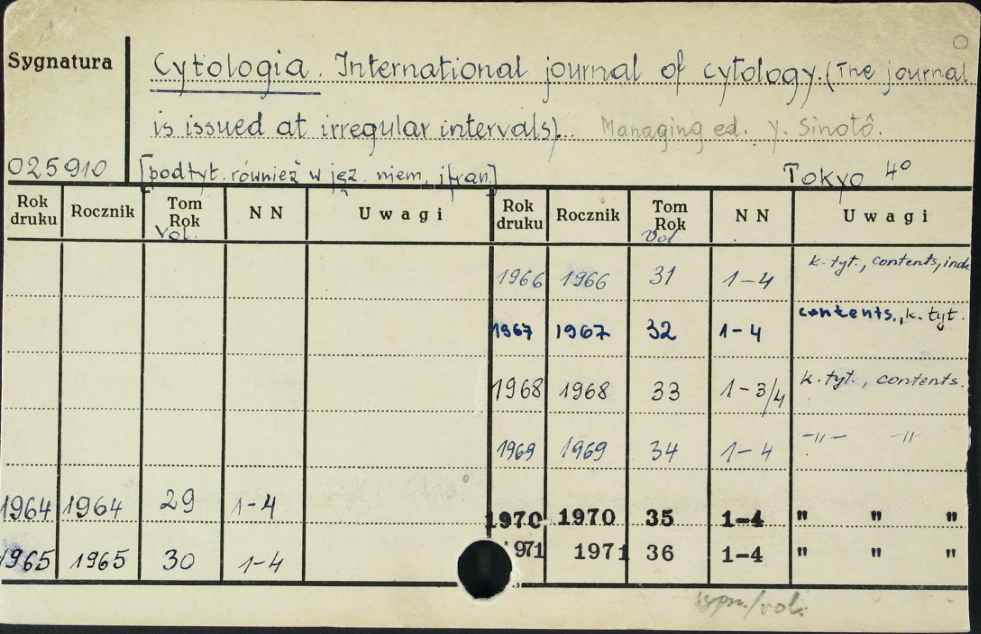 Sygnatura
Cytologia. International journal of cytology. (The journal
is issued at irregular intervals). Managing ed. Y. Sinotô.
025910 [podtyt. również w jęz. niem. i fran.] Tokyo 4°
Rok druku Rocznik Tom Rok Vol. N N Uwagi Rok druku Rocznik Tom Rok Vol N N Uwagi
1966 1966 31 1-4 k. tyt., contents, inde
1967 1967 32 1-4 contents., k. tyt.
1968 1968 33 1-3/4 k. tyt., contents.
1969 1969 34 1-4 -"- -"-
1964 1964 29 1-4 1970 1970 35 1-4 " " "
1965 1965 30 1-4 1971 1971 36 1-4 " " "